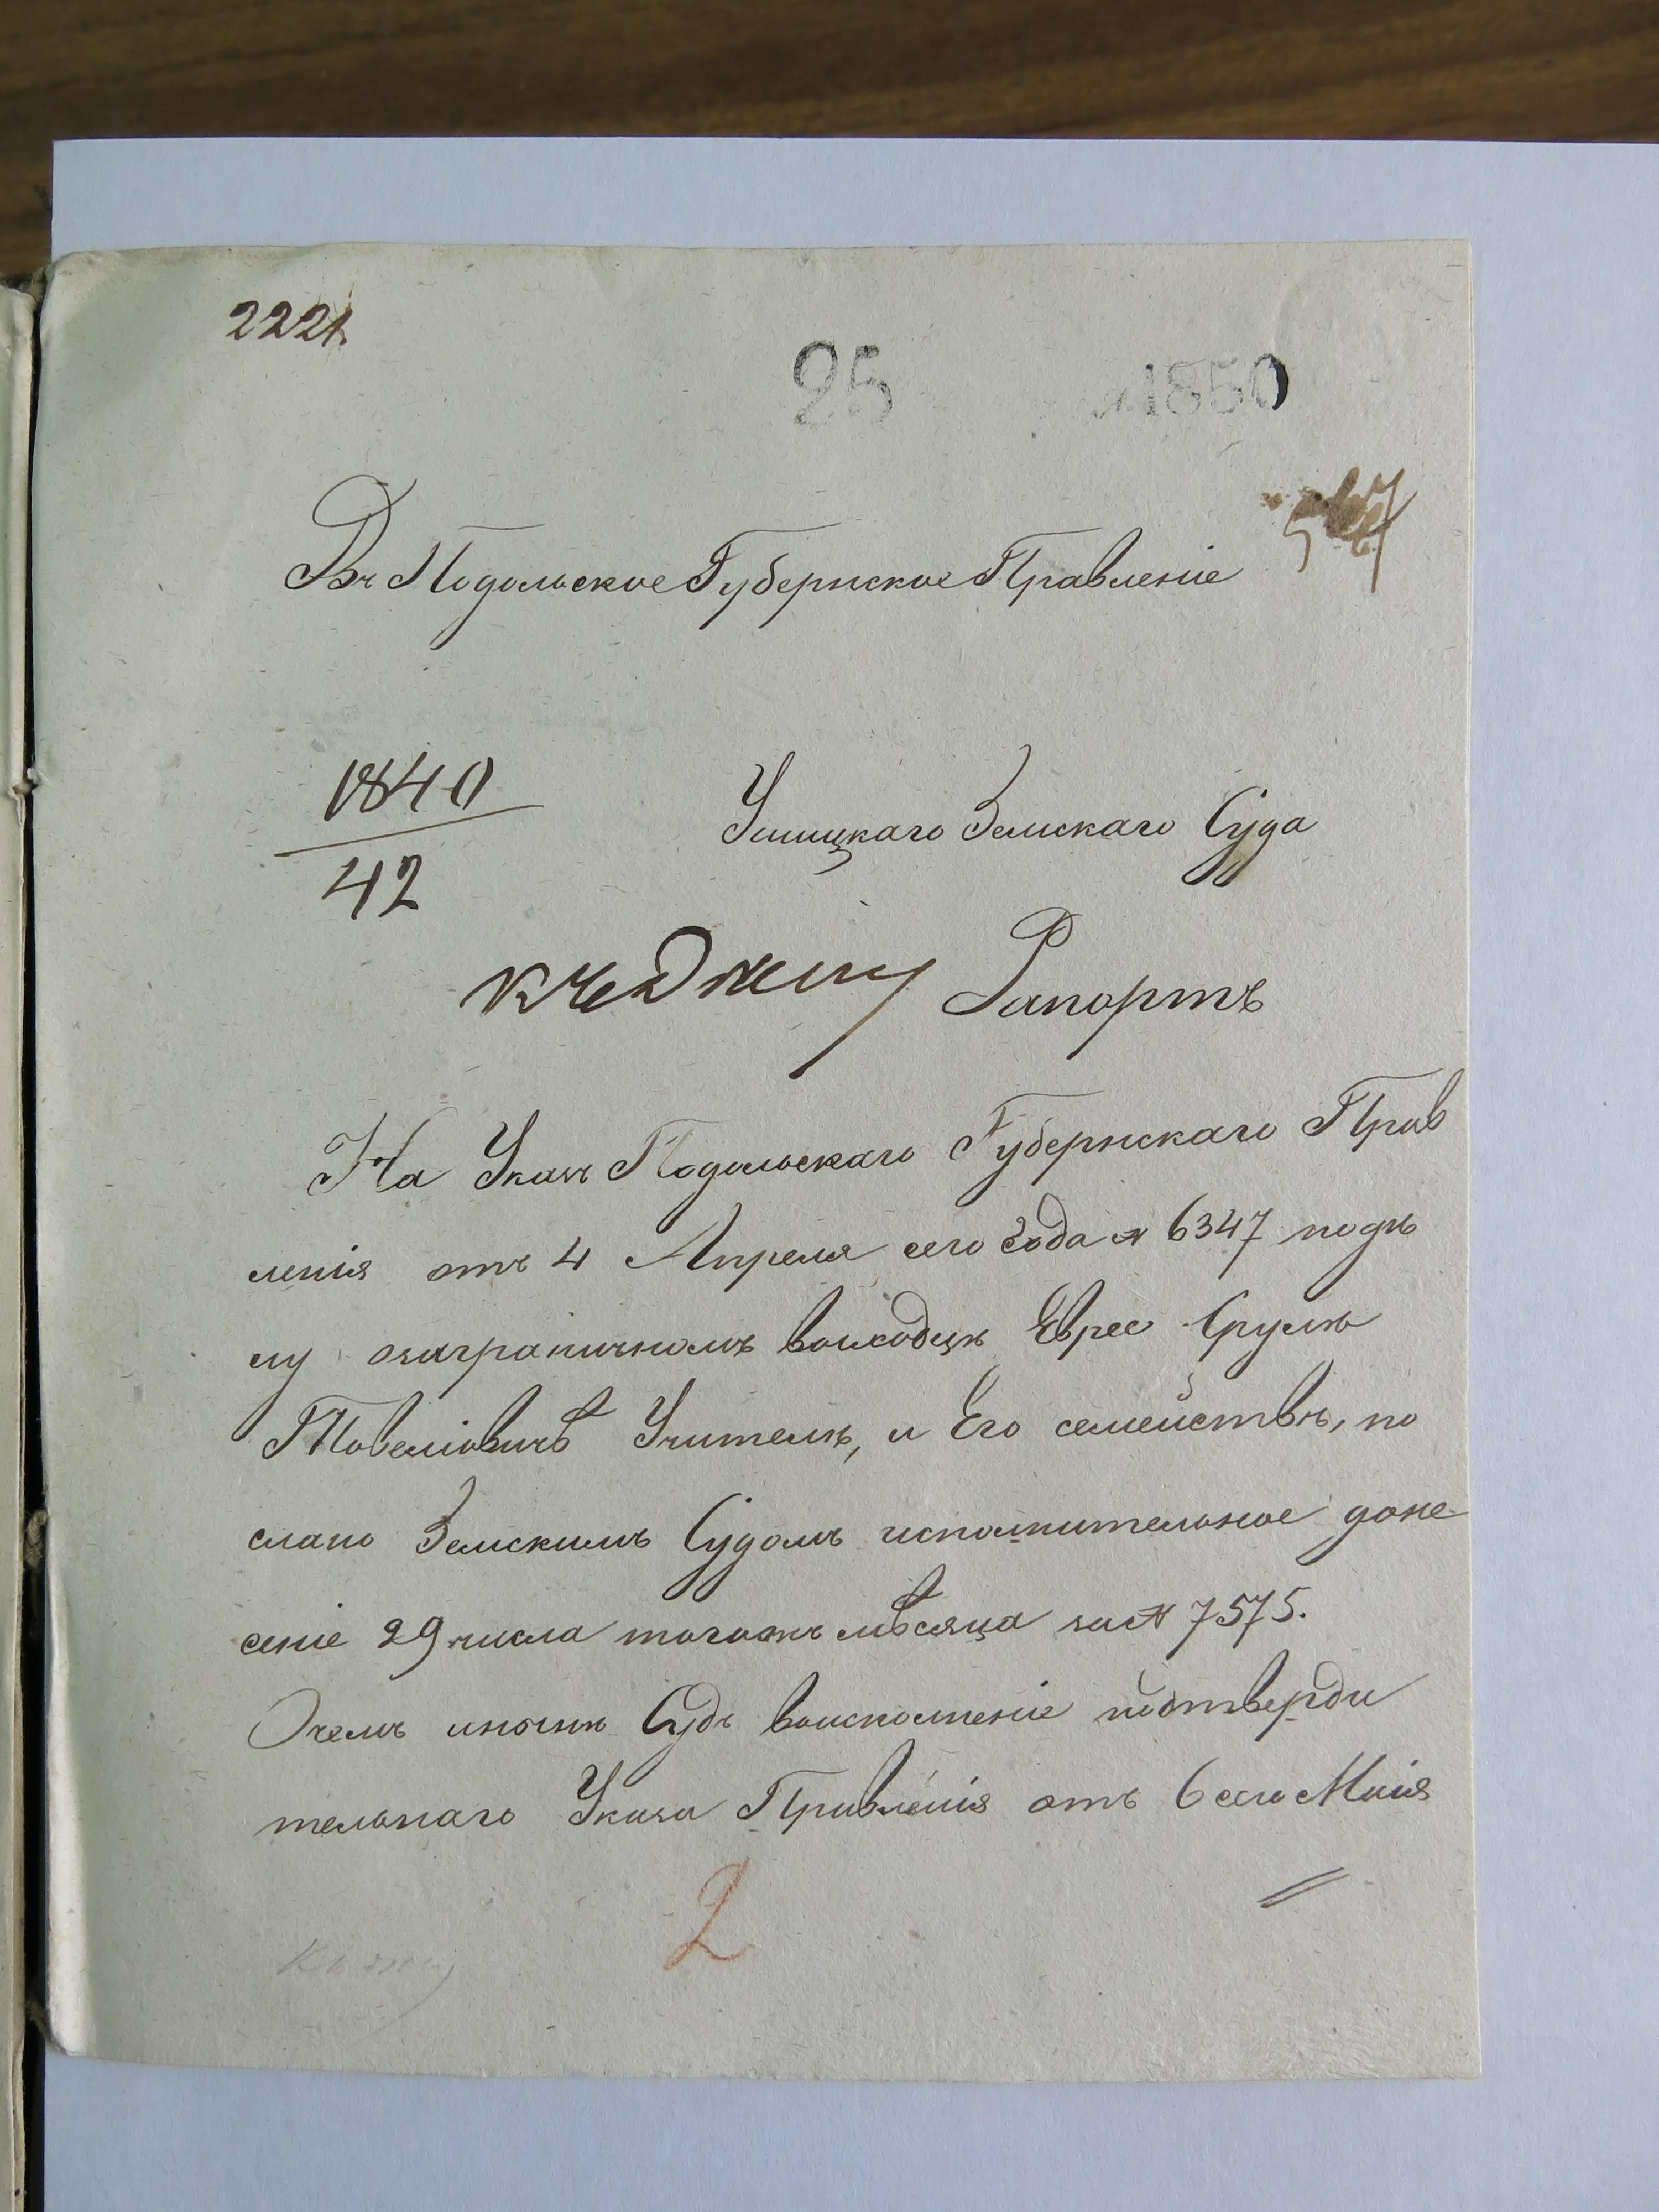 2221
25 1850
Въ Подольское Губернское Правленіе
1840
42
Ушицкаго Земскаго Суда
Рапортъ
На Указъ Подольскаго Губернскаго Прав
ленія отъ 4 Апреля сего года № 6347 подѣ
лу озаграничномъ выходцѣ Еврее Срулѣ
Товеліовичѣ Учителѣ, и Его семействѣ, по
слано Земскимъ Судомъ исполнительное доне
сеніе 29 числа тогожъ мѣсяца за № 7575.
Очемъ инынѣ Судъ воисполненіе подтверди
тельнаго Указа Правленія отъ 6 сего Маія
2